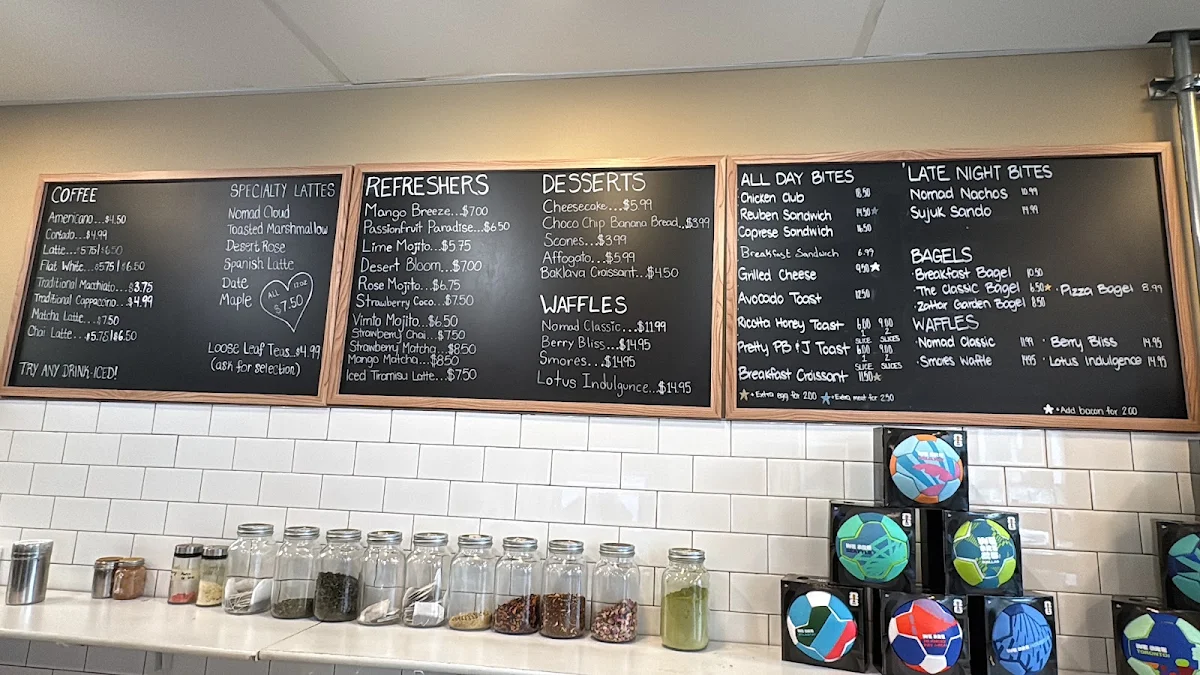 COFFEE
Americano...$4.50
Cortado...$4.99
Latte...$5.75|$6.50
Flat White...$5.75|$6.50
Traditional Macchiato...$3.75
Traditional Cappuccino...$4.99
Matcha Latte...$7.50
Chai Latte...$5.75|$6.50
TRY ANY DRINK ICED!
SPECIALTY LATTES
Nomad Cloud
Toasted Marshmallow
Desert Rose
Spanish Latte
Date
Maple
ALL 12 OZ
$7.50
LOOSE LEAF TEAS...$4.99
(ask for selection)
REFRESHERS
Mango Breeze...$7.00
Passionfruit Paradise...$6.50
Lime Mojito...$5.75
Desert Bloom...$7.00
Rose Mojito...$6.75
Strawberry Coco...$7.50
Vimto Mojito...$6.50
Strawberry Chai...$7.50
Strawberry Matcha...$8.50
Mango Matcha...$8.50
Iced Tiramisu Latte...$7.50
DESSERTS
Cheesecake...$5.99
Choco Chip Banana Bread...$3.99
Scones...$3.99
Affogato...$5.99
Baklava Croissant...$4.50
WAFFLES
Nomad Classic...$11.99
Berry Bliss...$14.95
Smores...$14.95
Lotus Indulgunce...$14.95
ALL DAY BITES
Chicken Club
Reuben Sandwich 14.50
Caprese Sandwich
Breakfast Sandwich 6.99
Grilled Cheese 9.50
Avocado Toast 12.50
Ricotta Honey Toast 6.00 9.00
1 SLICE 2 SLICES
Pretty PB + J Toast 6.00 9.00
1 SLICE 2 SLICES
Breakfast Croissant 11.50
• Extra egg for 2.00 • Extra meat for 2.50
LATE NIGHT BITES
Nomad Nachos 10.99
Sujuk Sando 14.99
BAGELS
• Breakfast Bagel 10.50
• The Classic Bagel 6.50 • Pizza Bagel 8.99
• Zaatar Garden Bagel 8.50
WAFFLES
• Nomad Classic 11.99 • Berry Bliss 14.95
• Smores Waffle 14.95 • Lotus Indulgence 14.95
• Add bacon for 2.00
WE ARE
WE ARE
WE ARE
WE ARE
WE ARE
WE ARE
TORONTO